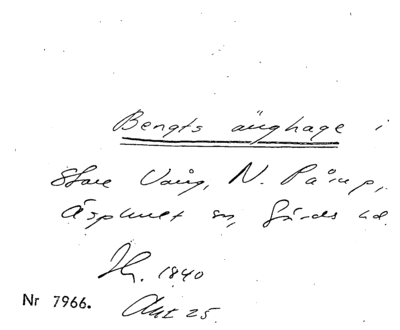 Bengts änghage i
Store Vång, N. Påarp,
Äsphult sn, Gärds hd.
Th. 1840
Nr 7966. Akt 25.